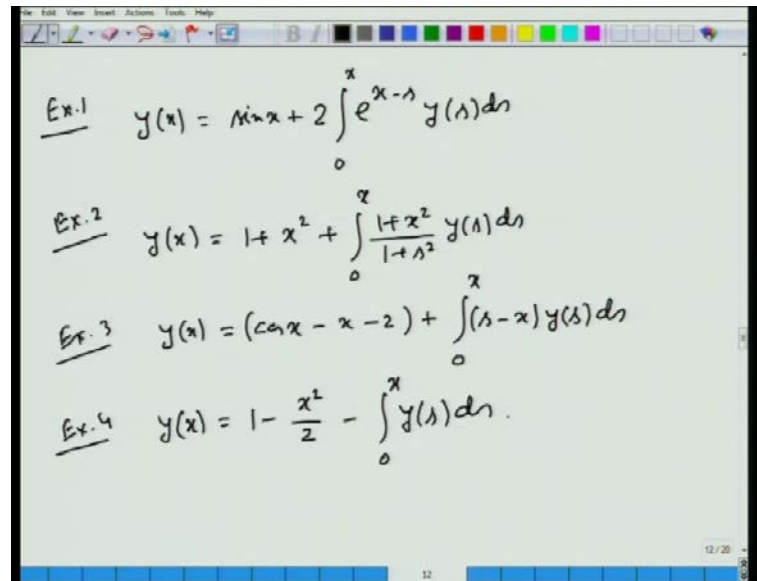 File Edit View Insert Actions Tools Help
Ex.1 y(x) = sinx + 2 ∫₀ˣ e^(x-s) y(s)ds
Ex.2 y(x) = 1+ x² + ∫₀ˣ (1+x²)/(1+s²) y(s)ds
Ex.3 y(x) = (cosx - x - 2) + ∫₀ˣ (s-x) y(s)ds
Ex.4 y(x) = 1 - x²/2 - ∫₀ˣ y(s)ds.
12/20
12